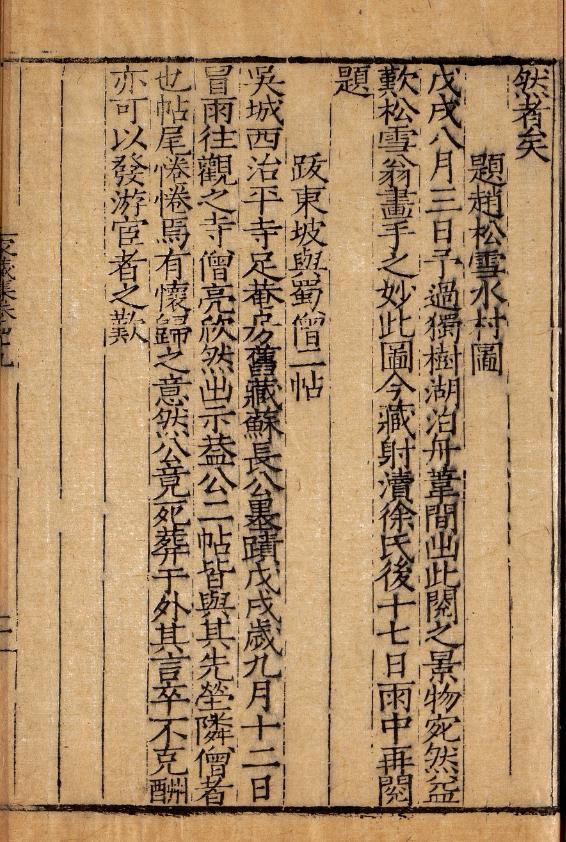 然者矣
題趙松雪水村圖
戊戌八月三日予過獨樹湖泊舟葦間出此閱之景物宛然益
歎松雪翁畫手之妙此圖今藏射瀆徐氏後十七日雨中再閱
題
跋東坡與蜀僧二帖
吳城西治平寺足菴房舊藏蘇長公墨蹟戊戌歲九月十二日
冒雨往觀之寺僧亮欣然出示葢公二帖皆與其先塋隣僧者
也帖尾惓惓焉有懷歸之意然公竟死葬于外其言卒不克酬
亦可以發游宦者之歎
藏集卷 十九